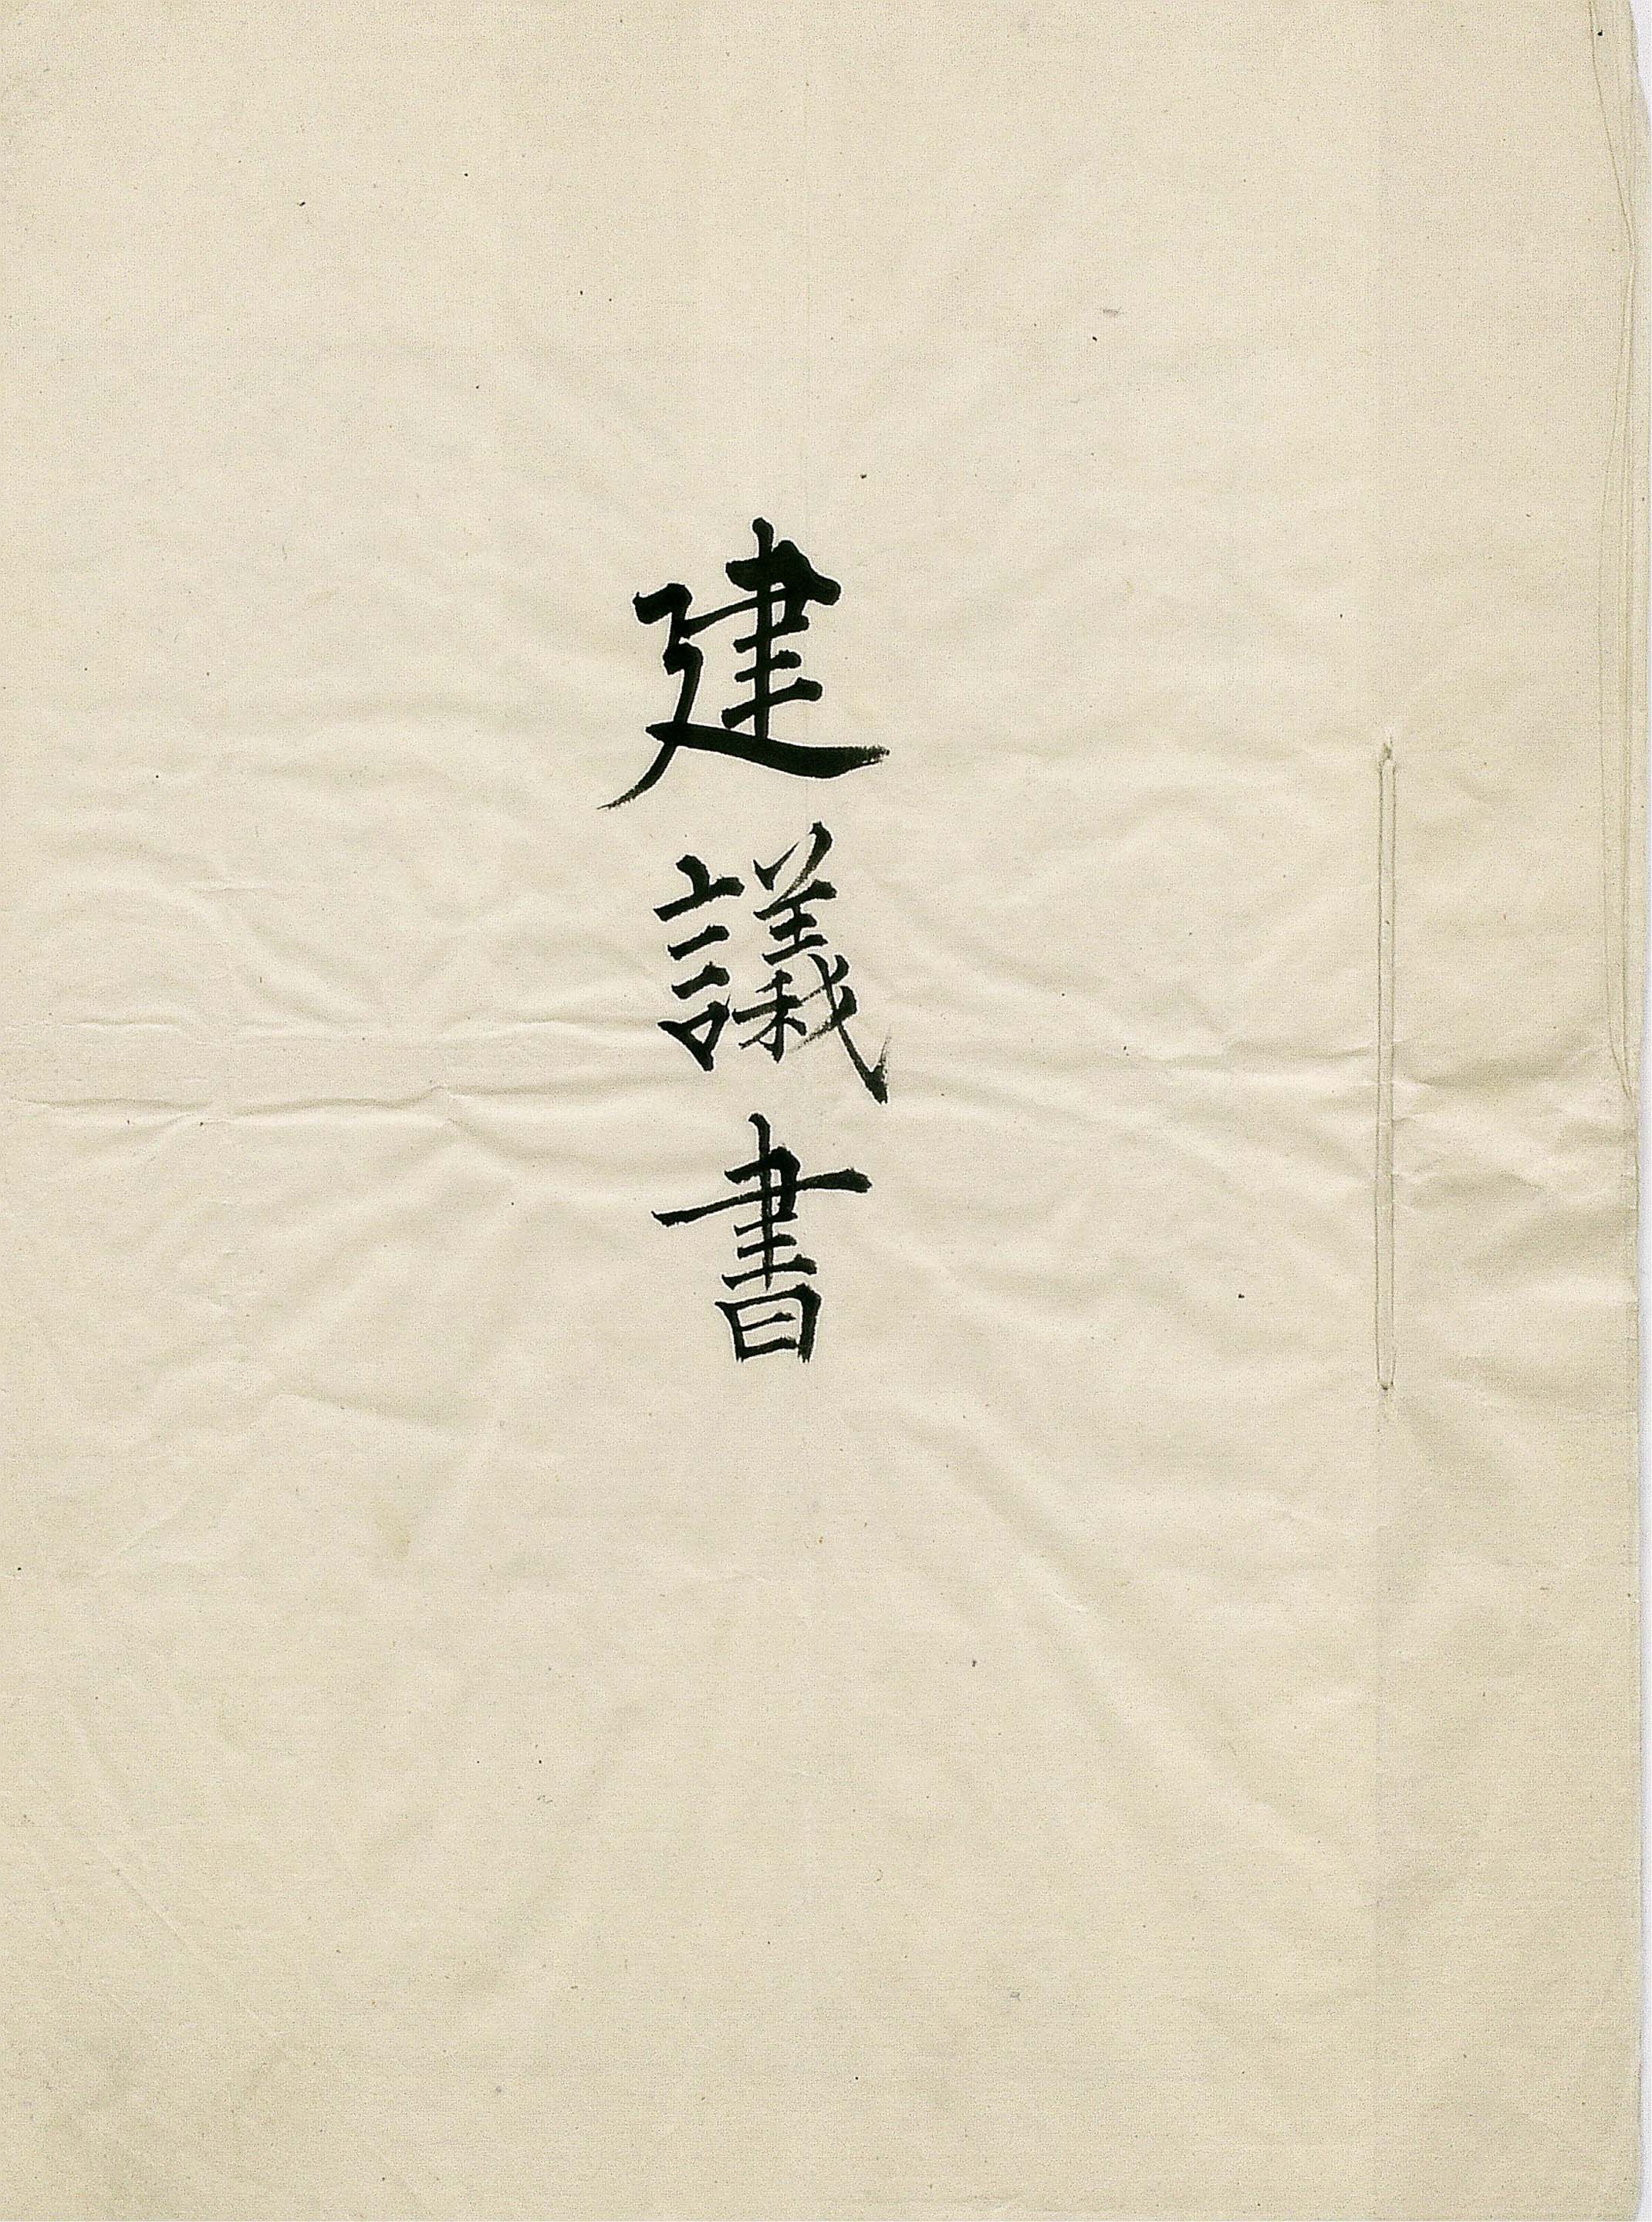 建議書